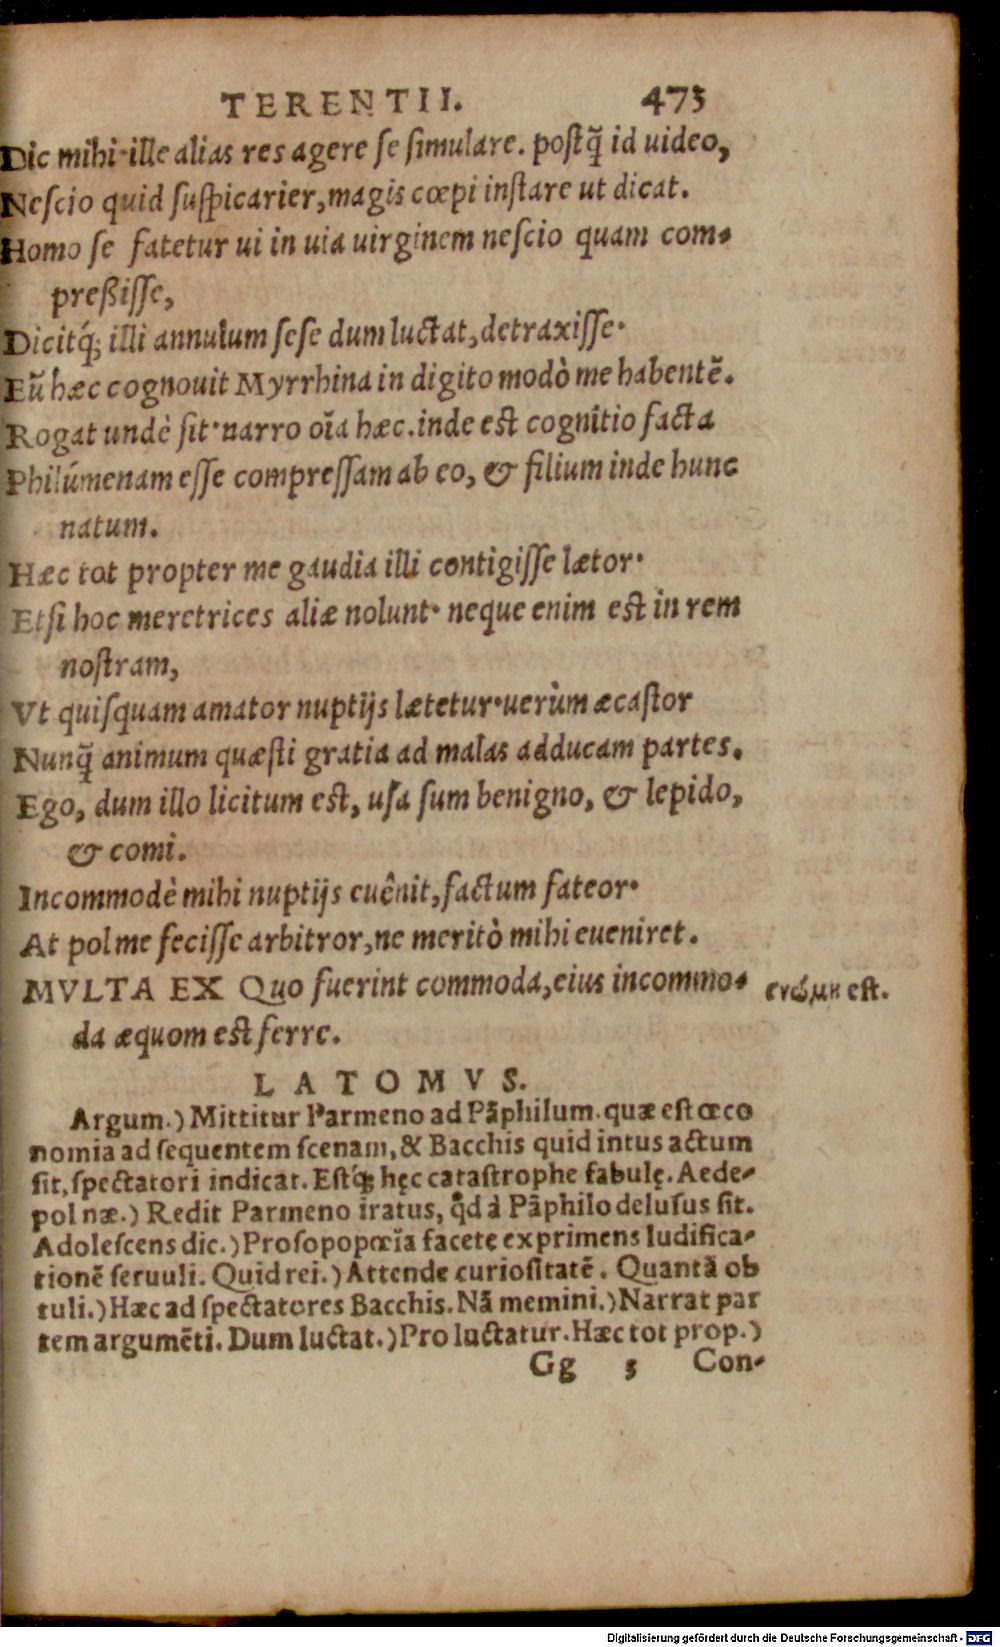 TERENTII. 473
Dic mihi·ille alias res agere se simulare. postq̃ id uideo,
Nescio quid suspicarier, magis cœpi instare ut dicat.
Homo se fatetur ui in uia uirginem nescio quam com-
preßisse,
Dicitq́; illi annulum sese dum luctat, detraxisse·
Eũ hæc cognouit Myrrhina in digito modò me habentẽ.
Rogat undè sit·narro oĩa hæc. inde est cognitio facta
Philúmenam esse compressam ab eo, & filium inde hunc
natum.
Hæc tot propter me gaudia illi contigisse lætor·
Etsi hoc meretrices aliæ nolunt· neque enim est in rem
nostram,
Vt quisquam amator nuptijs lætetur·uerùm æcastor
Nunq̃ animum quæsti gratia ad malas adducam partes.
Ego, dum illo licitum est, usa sum benigno, & lepido,
& comi.
Incommodè mihi nuptijs euênit, factum fateor·
At pol me fecisse arbitror, ne meritò mihi eueniret.
MVLTA EX Quo fuerint commoda, eius incommo- γνώμη est.
da æquom est ferre.
LATOMVS.
Argum.) Mittitur Parmeno ad Pãphilum. quæ est œco
nomia ad sequentem scenam, & Bacchis quid intus actum
sit, spectatori indicat. Estq́; hęc catastrophe fabulę. Aede-
pol næ.) Redit Parmeno iratus, q̃d à Pãphilo delusus sit.
Adolescens dic.) Prosopopœĩa facetę exprimens ludifica-
tionẽ seruuli. Quid rei.) Attende curiositatẽ. Quantã ob
tuli.) Hæc ad spectatores Bacchis. Nã memini.) Narrat par
tem argumẽti. Dum luctat.) Pro luctatur. Hæc tot prop.)
Gg 5 Con-
Digitalisierung gefördert durch die Deutsche Forschungsgemeinschaft - DFG